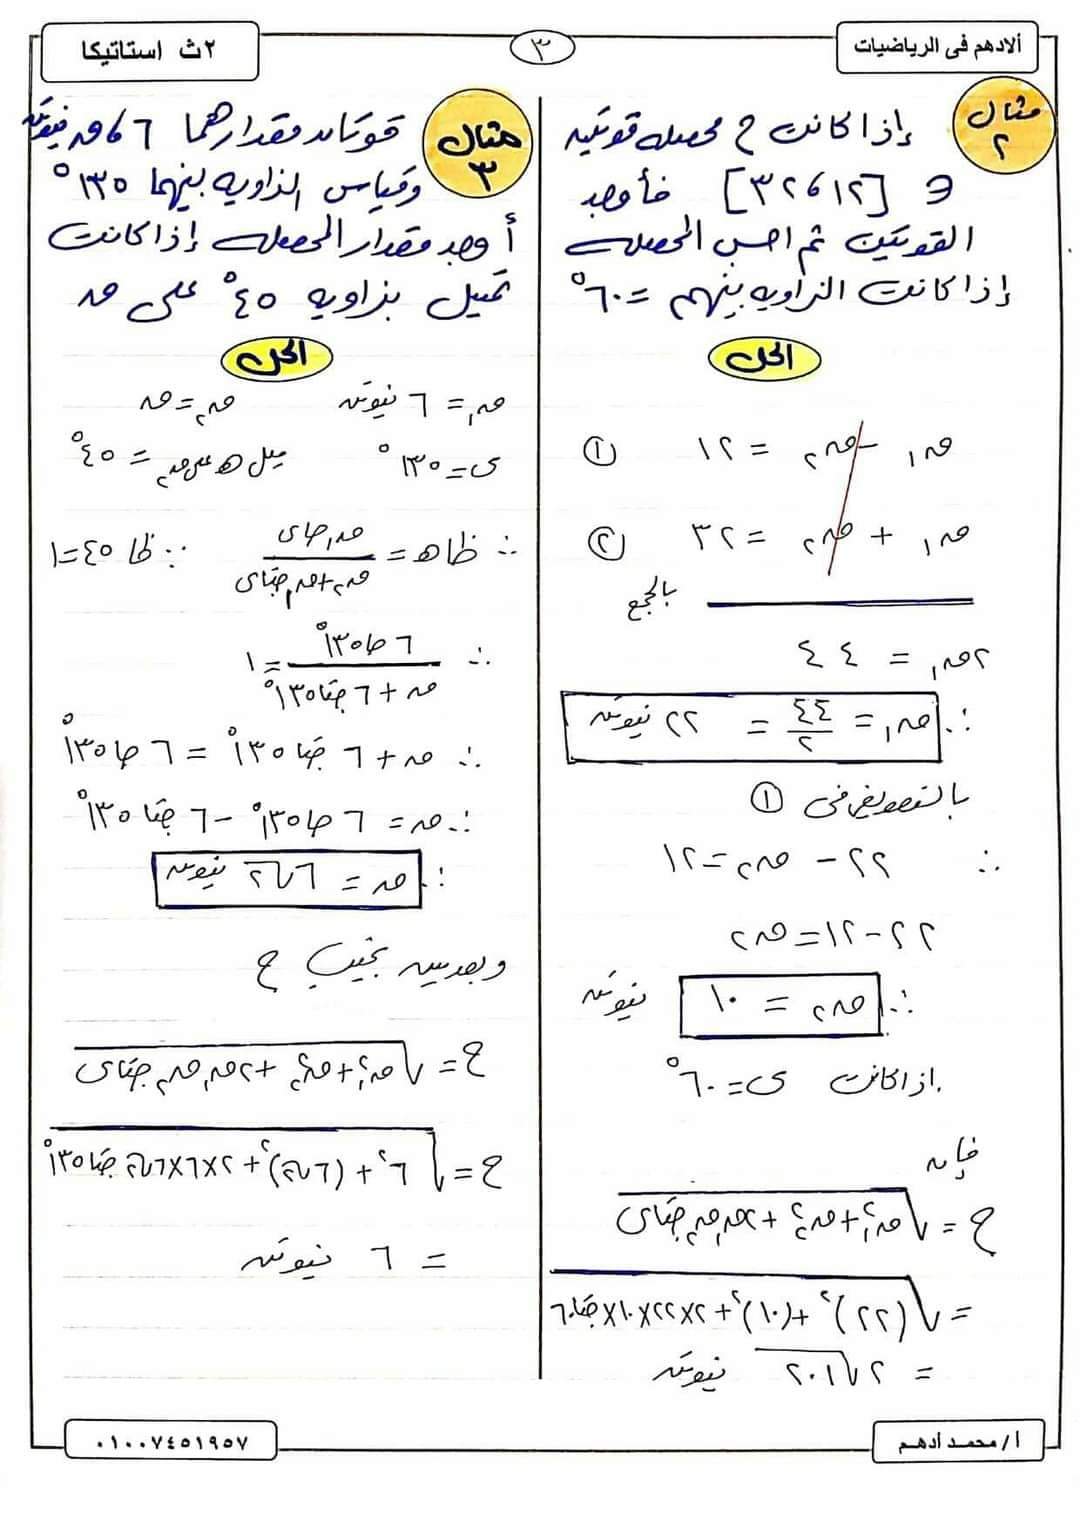 ألادهم فى الرياضيات
٣
٢ث استاتيكا
مثال ٢
إذا كانت ح محصله قوتين
و ∈ [١٢ ، ٣٢] فأوجد
القوتين ثم احسب المحصله
إذا كانت الزاويه بينهم = ٦٠°
الحل
ق١ - ق٢ = ١٢ ①
ق١ + ق٢ = ٣٢ ②
بالجمع
٢ق١ = ٤٤
∴ ق١ = ٤٤/٢ = ٢٢ نيوتن
بالتعويض فى ①
∴ ٢٢ - ق٢ = ١٢
٢٢ - ١٢ = ق٢
∴ ق٢ = ١٠ نيوتن
إذا كانت ى = ٦٠°
فإن
ح = √(ق١² + ق٢² + ٢ق١ق٢ جتاى)
= √((٢٢)² + (١٠)² + ٢×٢٢×١٠×جتا٦٠)
= ٢√٢٠١ نيوتن
مثال ٣
قوتان مقدارهما ٦ ، ق نيوتن
وقياس الزاويه بينهما ١٣٥°
أوجد مقدار المحصله إذا كانت
تميل بزاويه ٤٥° على ق
الحل
ق١ = ٦ نيوتن ق٢ = ق
ى = ١٣٥° ميل ه على ق٢ = ٤٥°
∴ ظا ه = ق١ جاى / (ق٢ + ق١ جتاى) ∵ ظا ٤٥ = ١
∴ ٦ جا١٣٥° / (ق + ٦ جتا١٣٥°) = ١
∴ ق + ٦ جتا ١٣٥° = ٦ جا ١٣٥°
∴ ق = ٦ جا١٣٥° - ٦ جتا ١٣٥°
∴ ق = ٦√٢ نيوتن
وبعدين نجيب ح
ح = √(ق١² + ق٢² + ٢ق١ق٢ جتاى)
ح = √(٦² + (٦√٢)² + ٢×٦×٦√٢ جتا١٣٥°)
= ٦ نيوتن
أ/محمد أدهم
٠١٠٠٧٤٥١٩٥٧